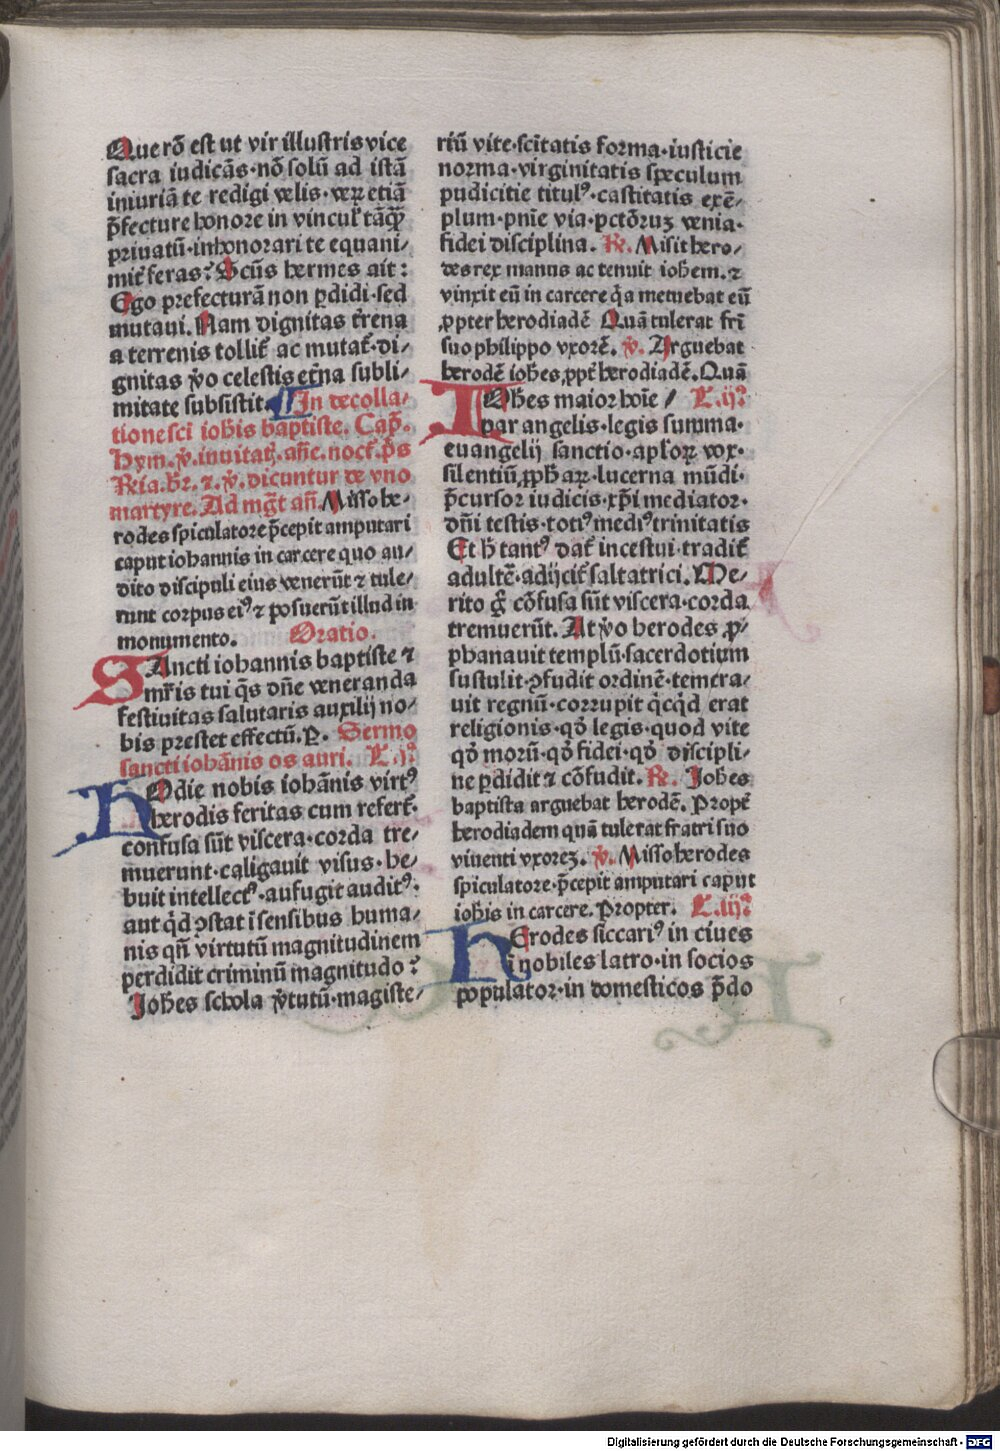 Que rõ est ut vir illustris vice
sacra iudicãs·nõ solũ ad istã
iniuriã te redigi velis·veꝝ etiã
p̃fecture honore in vincul' tãꝙ̃
priuatũ·inhonorari te equani⸗
mit̃ feras? Scũs hermes ait:
Ego prefecturã non ꝑdidi·sed
mutaui. Nam dignitas tr̃ena
a terrenis tollit̃ ac mutat̃·di⸗
gnitas v̊o celestis et̃na subli⸗
mitate subsistit. In decolla⸗
tione sci iohis baptiste. Cap̃.
Hym. v̊. inuitat̃. añe. noct̃. p̃s
Rñia. br̃. ⁊. v̊. dicuntur de vno
martyre. Ad mg̃t añ. Misso he⸗
rodes spiculatore p̃cepit amputari
caput iohannis in carcere quo au⸗
dito discipuli eius venerũt ⁊ tule⸗
runt corpus eiꝰ ⁊ posuerũt illud in
monumento. Oratio.
SAncti iohannis baptiste ⁊
mr̃is tui q̃s dñe veneranda
festiuitas salutaris auxilij no⸗
bis prestet effectũ. P. Sermo
sancti iohãnis os auri. L. j?
HOdie nobis iohãnis virtꝰ
herodis feritas cum refert̃·
confusa sũt viscera·corda tre⸗
muerunt·caligauit visus·he⸗
buit intellectꝰ·aufugit auditꝰ:
aut q̇d ꝯstat ĩ sensibus huma⸗
nis qñ virtutũ magnitudinem
perdidit criminũ magnitudo?
Joh̃es schola v̊tutũ·magiste⸗
riũ vite·sc̃itatis forma·iusticie
norma·virginitatis speculum
pudicitie titulꝰ·castitatis exẽ⸗
plum·pnĩe via·pctõruʒ venia·
fidei disciplina. R̃. Misit hero⸗
des rex manus ac tenuit ioh̃em.⁊
vinxit eũ in carcere q̇a metuebat eũ
ꝓpter herodiadẽ Quã tulerat frĩ
suo philippo vxorẽ. v̊. Arguebat
herodẽ ioh̃es ꝓpt̃ herodiadẽ. Quã
IOh̃es maior hoĩe⸗ L. ij?
par angelis·legis summa·
euangelij sanctio·apl'oꝝ vox·
silentiũ ꝓph̃aꝝ·lucerna mũdi·
p̃cursor iudicis·xp̃i mediator·
dñi testis·totiꝰ mediꝰ trinitatis
Et h̃ tantꝰ dat̃ incestui·tradit̃
adult̃e·adijcit̃ saltatrici. Me⸗
rito g̃ cõfusa sũt viscera·corda
tremuerũt. At v̊o herodes ꝓ⸗
phanauit templũ·sacerdotium
sustulit·ꝯfudit ordinẽ·temera⸗
uit regnũ·corrupit q̇cq̇d erat
religionis·qð legis·quod vite
qð morũ·qð fidei·qð discipli⸗
ne ꝑdidit ⁊ cõfudit. R̃. Johes
baptista arguebat herodẽ. Propt̃
herodiadem quã tulerat fratri suo
viuenti vxoreʒ. v̊. Misso herodes
spiculatore·p̃cepit amputari caput
ioh̃is in carcere. Propter. L. iij?
HErodes siccariꝰ in ciues
ĩ nobiles latro·in socios
populator·in domesticos p̃do
Digitalisierung gefördert durch die Deutsche Forschungsgemeinschaft - DFG